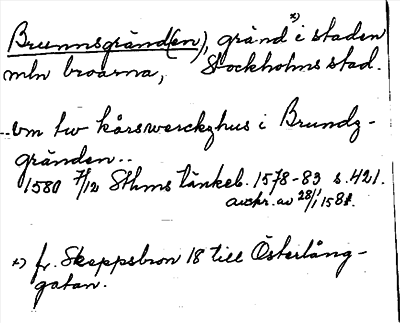 Brunnsgränd(en), gränd *) i staden
mln broarna, Stockholms stad.
..om tw kårswerckzhus i Brundz-
gränden..
1580 7/12 Sthms tänkeb. 1578-83 s. 421.
avskr. av 28/1 1581.
*) fr. Skeppsbron 18 till Österlång-
gatan.